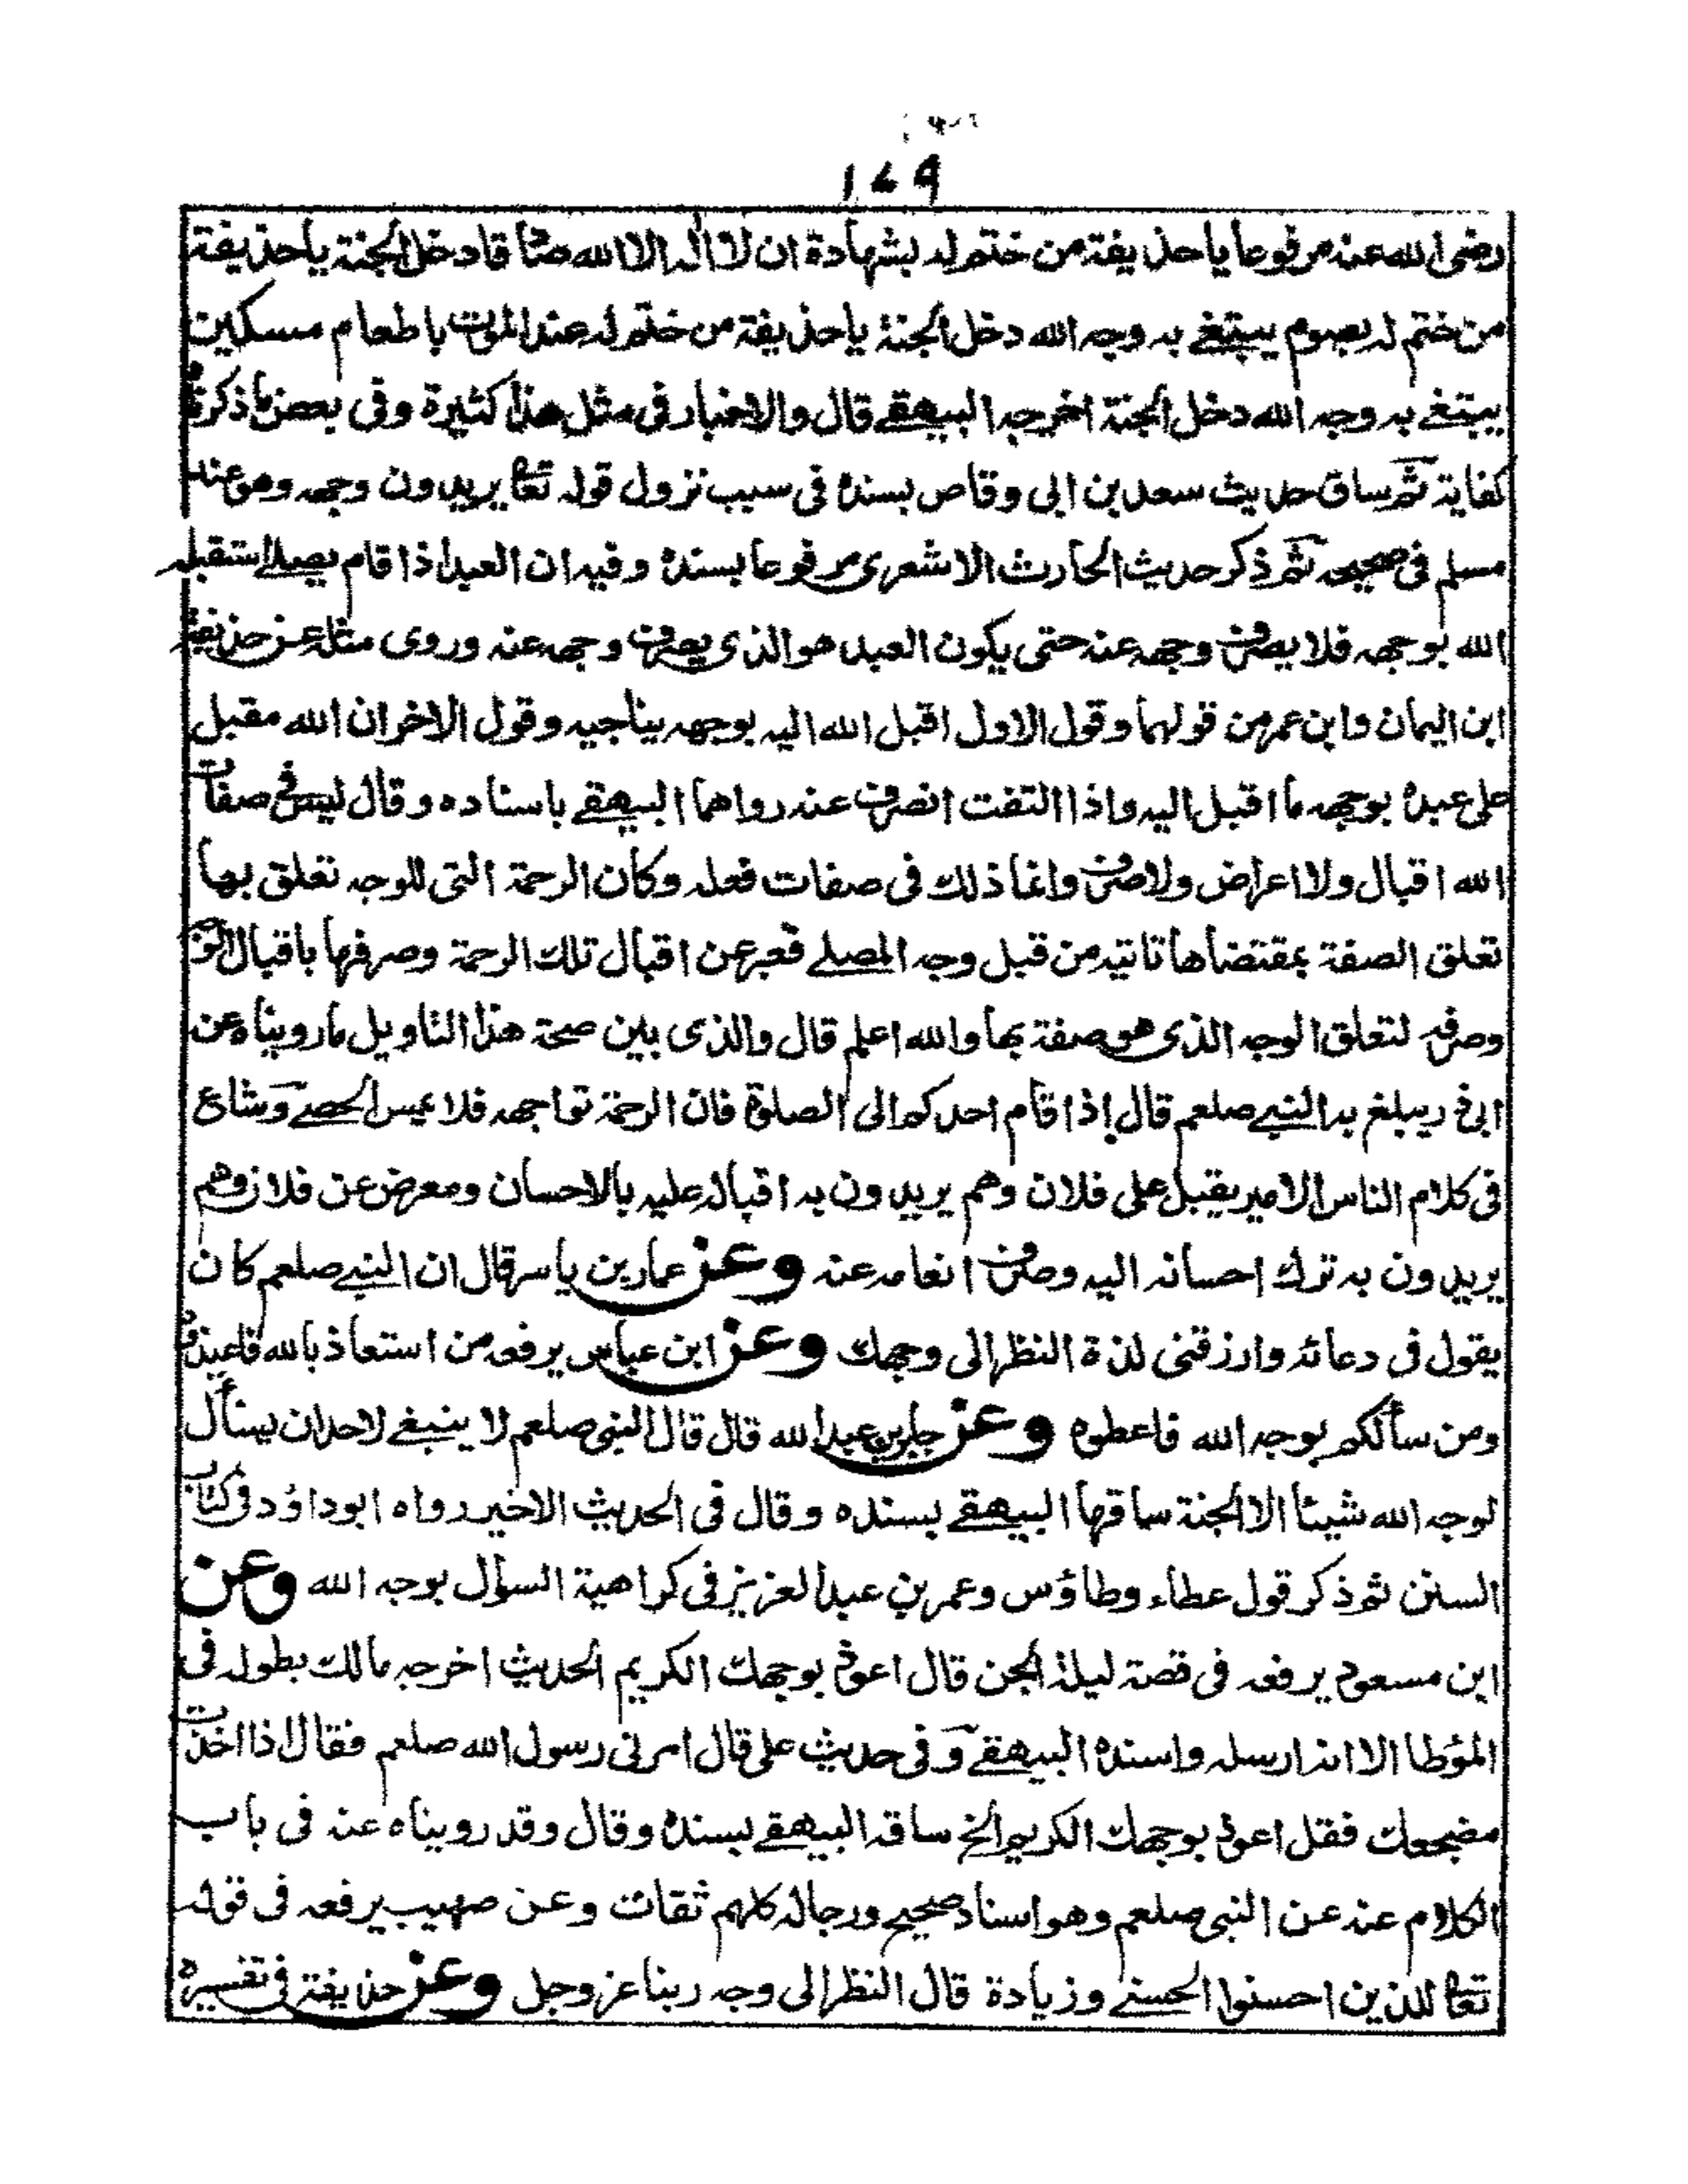 ١٧٩
رضى الله عنه مرفوعا يا حذيفة من ختم له بشهادة ان لا اله الا الله صادقا دخل الجنة يا حذيفة
من ختم له بصوم يبتغى به وجه الله دخل الجنة يا حذيفة من ختم له عند الموت باطعام مسكين
يبتغى به وجه الله دخل الجنة اخرجه البيهقى قال والاخبار فى مثل هذا كثيرة وفى بعض ما ذكرته
كفاية ثم ساق حديث سعد بن ابى وقاص بسنده فى سبب نزول قوله تعا يريدون وجهه وهو عند
مسلم فى صحيحه ثم ذكر حديث الحارث الاشعرى مرفوعا بسنده وفيه ان العبد اذا قام يصلى استقبله
الله بوجهه فلا يصرف وجهه عنه حتى يكون العبد هو الذى يصرف وجهه عنه وروى مثله عن حذيفة
ابن اليمان وابن عمر من قولهما وقول الاول اقبل الله اليه بوجهه يناجيه وقول الاخر ان الله مقبل
على عبده بوجهه ما اقبل اليه واذا التفت انصرف عنه رواهما البيهقى باسناده وقال ليس فى صفات
الله اقبال ولا اعراض ولا صرف وانما ذلك فى صفات فعله وكان الرحمة التى للوجه تعلق بها
تعلق الصفة بمقتضاها تاتيه من قبل وجه المصلى فعبر عن اقبال تلك الرحمة وصرفها باقبال الوجه
وصرفه لتعلق الوجه الذى هو صفة بها والله اعلم قال والذى بين صحة هذا التاويل ما رويناه عن
ابى ذر يبلغ به النبى صلعم قال اذا قام احدكم الى الصلوة فان الرحمة تواجهه فلا يمس الحصى وشاع
فى كلام الناس الامير يقبل على فلان وهم يريدون به اقباله عليه بالاحسان ومعرض عن فلان وهم
يريدون به ترك احسانه اليه وصرف انعامه عنه وعن عمار بن ياسر قال ان النبى صلعم كان
يقول فى دعائه وارزقنى لذة النظر الى وجهك وعن ابن عباس يرفعه من استعاذ بالله فاعيذوه
ومن سألكم بوجه الله فاعطوه وعن جابر بن عبد الله قال قال النبى صلعم لا ينبغى لاحد ان يسأل
لوجه الله شيئا الا الجنة ساقها البيهقى بسنده وقال فى الحديث الاخير رواه ابو داؤد فى كتاب
السنن ثم ذكر قول عطاء وطاؤس وعمر بن عبد العزيز فى كراهية السؤال بوجه الله وعن
ابن مسعود يرفعه فى قصة ليلة الجن قال اعوذ بوجهك الكريم الحديث اخرجه مالك بطوله فى
المؤطا الا انه ارسله واسنده البيهقى وفى حديث على قال امرنى رسول الله صلعم فقال اذا اخذت
مضجعك فقل اعوذ بوجهك الكريم الخ ساقه البيهقى بسنده وقال وقد رويناه عنه فى باب
الكلام عنه عن النبى صلعم وهو اسناد صحيح ورجاله كلهم ثقات وعن صهيب يرفعه فى قوله
تعا للذين احسنوا الحسنى وزيادة قال النظر الى وجه ربنا عز وجل وعن حذيفة فى تفسيره